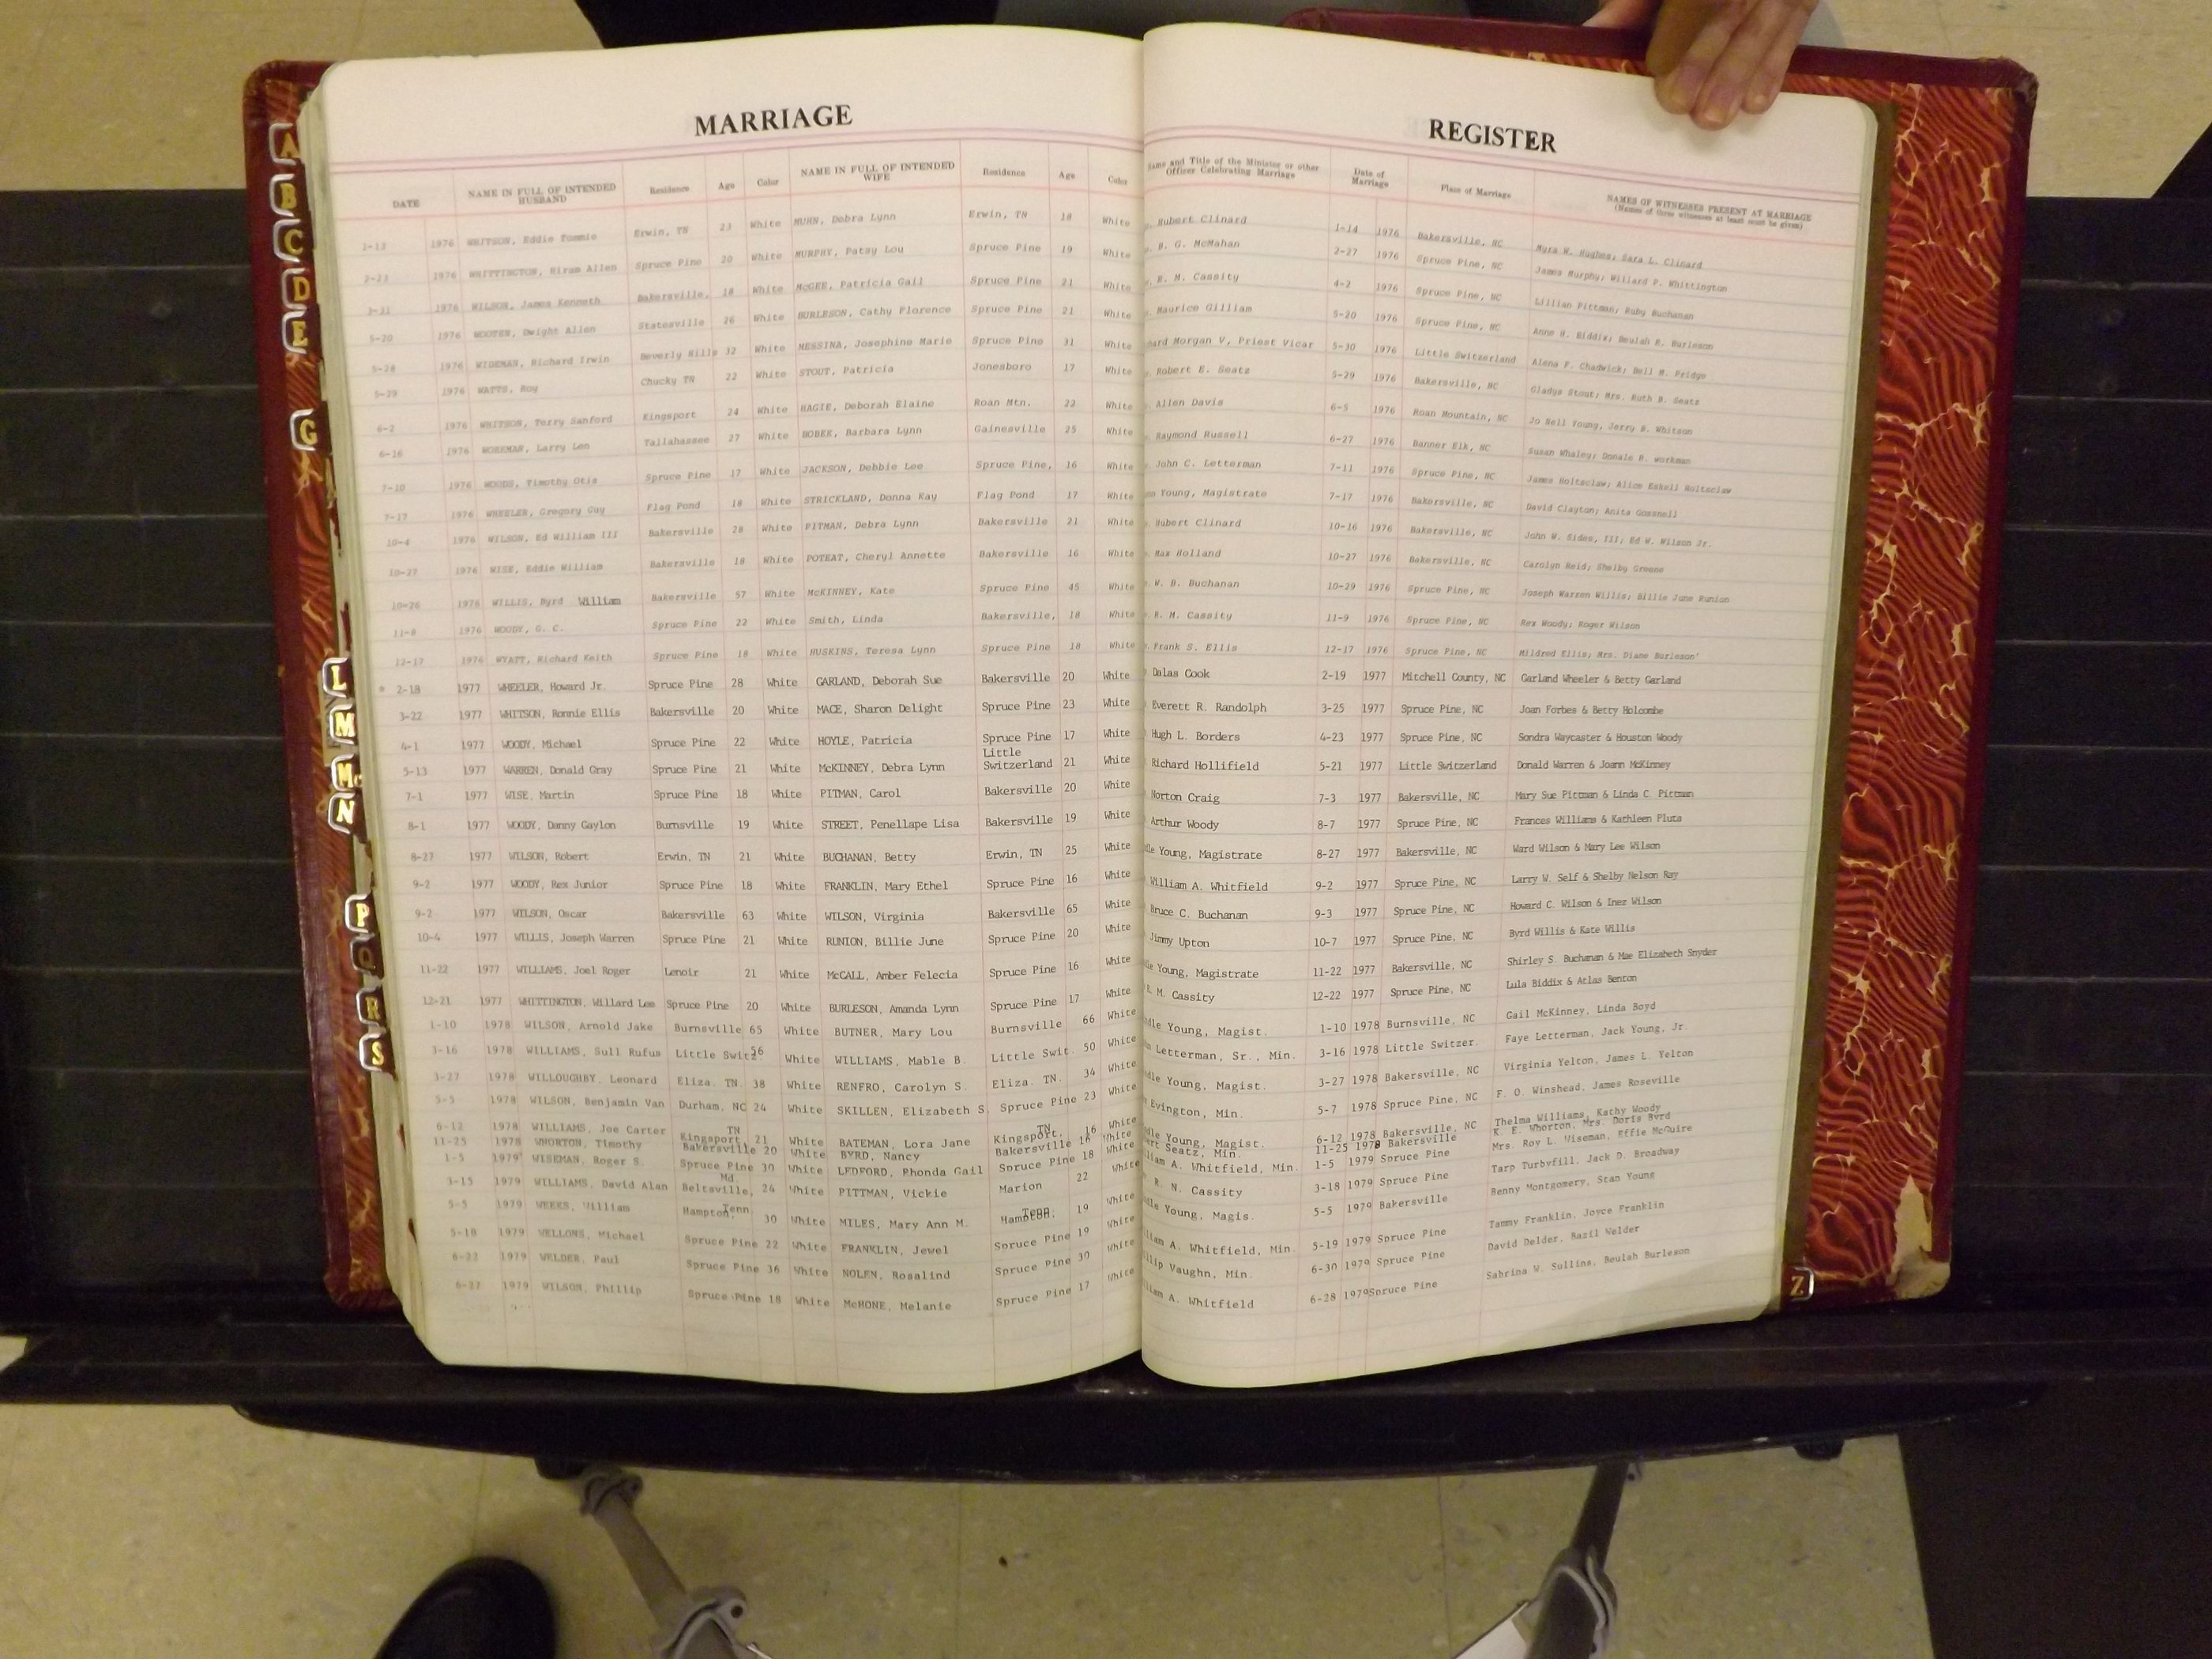 MARRIAGE
REGISTER
DATE NAME IN FULL OF INTENDED HUSBAND Residence Age Color NAME IN FULL OF INTENDED WIFE Residence Age Color Name and Title of the Minister or other Officer Celebrating Marriage Date of Marriage Place of Marriage NAMES OF WITNESSES PRESENT AT MARRIAGE (Names of three witnesses at least must be given)
1-13 1976 WHITSON, Eddie Tommie Erwin, TN 23 White MUHN, Debra Lynn Erwin, TN 18 White Hubert Clinard 1-14 1976 Bakersville, NC Myra W. Hughes; Sara L. Clinard
2-23 1976 WHITTINGTON, Hiram Allen Spruce Pine 20 White MURPHY, Patsy Lou Spruce Pine 19 White B. G. McMahan 2-27 1976 Spruce Pine, NC James Murphy; Willard P. Whittington
3-31 1976 WILSON, James Kenneth Bakersville, 18 White McGEE, Patricia Gail Spruce Pine 21 White R. M. Cassity 4-2 1976 Spruce Pine, NC Lillian Pittman; Ruby Buchanan
5-20 1976 WOOTEN, Dwight Allen Statesville 26 White BURLESON, Cathy Florence Spruce Pine 21 White Maurice Gilliam 5-20 1976 Spruce Pine, NC Anne H. Biddix; Beulah R. Burleson
5-28 1976 WIDEMAN, Richard Irwin Beverly Hills 32 White MESSINA, Josephine Marie Spruce Pine 31 White hard Morgan V, Priest Vicar 5-30 1976 Little Switzerland Alena F. Chadwick; Bell M. Pridge
5-29 1976 WATTS, Roy Chucky TN 22 White STOUT, Patricia Jonesboro 17 White Robert E. Seatz 5-29 1976 Bakersville, NC Gladys Stout; Mrs. Ruth B. Seatz
6-2 1976 WHITSON, Terry Sanford Kingsport 24 White HAGIE, Deborah Elaine Roan Mtn. 22 White Allen Davis 6-5 1976 Roan Mountain, NC Jo Nell Young, Jerry B. Whitson
6-16 1976 WORKMAN, Larry Len Tallahassee 27 White BOBEK, Barbara Lynn Gainesville 25 White Raymond Russell 6-27 1976 Banner Elk, NC Susan Whaley; Donale B. workman
7-10 1976 WOODS, Timothy Otis Spruce Pine 17 White JACKSON, Debbie Lee Spruce Pine, 16 White John C. Letterman 7-11 1976 Spruce Pine, NC James Holtsclaw; Alice Eskell Holtsclaw
7-17 1976 WHEELER, Gregory Guy Flag Pond 18 White STRICKLAND, Donna Kay Flag Pond 17 White Young, Magistrate 7-17 1976 Bakersville, NC David Clayton; Anita Gosnell
10-4 1976 WILSON, Ed William III Bakersville 28 White PITMAN, Debra Lynn Bakersville 21 White Hubert Clinard 10-16 1976 Bakersville, NC John W. Sides, III; Ed W. Wilson Jr.
10-27 1976 WISE, Eddie William Bakersville 18 White POTEAT, Cheryl Annette Bakersville 16 White Max Holland 10-27 1976 Bakersville, NC Carolyn Reid; Shelby Greene
10-26 1976 WILLIS, Byrd William Bakersville 57 White McKINNEY, Kate Spruce Pine 45 White W. B. Buchanan 10-29 1976 Spruce Pine, NC Joseph Warren Willis; Billie June Runion
11-8 1976 WOODY, G. C. Spruce Pine 22 White Smith, Linda Bakersville, 18 White R. M. Cassity 11-9 1976 Spruce Pine, NC Rex Woody; Roger Wilson
12-17 1976 WYATT, Richard Keith Spruce Pine 18 White HUSKINS, Teresa Lynn Spruce Pine 18 White Frank S. Ellis 12-17 1976 Spruce Pine, NC Mildred Ellis; Mrs. Diane Burleson
* 2-18 1977 WHEELER, Howard Jr. Spruce Pine 28 White GARLAND, Deborah Sue Bakersville 20 White Dalas Cook 2-19 1977 Mitchell County, NC Garland Wheeler & Betty Garland
3-22 1977 WHITSON, Ronnie Ellis Bakersville 20 White MACE, Sharon Delight Spruce Pine 23 White Everett R. Randolph 3-25 1977 Spruce Pine, NC Joan Forbes & Betty Holcombe
4-1 1977 WOODY, Michael Spruce Pine 22 White HOYLE, Patricia Spruce Pine 17 White Hugh L. Borders 4-23 1977 Spruce Pine, NC Sondra Waycaster & Houston Woody
5-13 1977 WARREN, Donald Gray Spruce Pine 21 White McKINNEY, Debra Lynn Little Switzerland 21 White Richard Hollifield 5-21 1977 Little Switzerland Donald Warren & Joann McKinney
7-1 1977 WISE, Martin Spruce Pine 18 White PITMAN, Carol Bakersville 20 White Norton Craig 7-3 1977 Bakersville, NC Mary Sue Pittman & Linda C. Pittman
8-1 1977 WOODY, Danny Gaylon Burnsville 19 White STREET, Penellape Lisa Bakersville 19 White Arthur Woody 8-7 1977 Spruce Pine, NC Frances Williams & Kathleen Pluta
8-27 1977 WILSON, Robert Erwin, TN 21 White BUCHANAN, Betty Erwin, TN 25 White dle Young, Magistrate 8-27 1977 Bakersville, NC Ward Wilson & Mary Lee Wilson
9-2 1977 WOODY, Rex Junior Spruce Pine 18 White FRANKLIN, Mary Ethel Spruce Pine 16 White William A. Whitfield 9-2 1977 Spruce Pine, NC Larry W. Self & Shelby Nelson Ray
9-2 1977 WILSON, Oscar Bakersville 63 White WILSON, Virginia Bakersville 65 White Bruce C. Buchanan 9-3 1977 Spruce Pine, NC Howard C. Wilson & Inez Wilson
10-4 1977 WILLIS, Joseph Warren Spruce Pine 21 White RUNION, Billie June Spruce Pine 20 White Jimmy Upton 10-7 1977 Spruce Pine, NC Byrd Willis & Kate Willis
11-22 1977 WILLIAMS, Joel Roger Lenoir 21 White McCALL, Amber Felecia Spruce Pine 16 White dle Young, Magistrate 11-22 1977 Bakersville, NC Shirley S. Buchanan & Mae Elizabeth Snyder
12-21 1977 WHITTINGTON, Willard Lee Spruce Pine 20 White BURLESON, Amanda Lynn Spruce Pine 17 White R. M. Cassity 12-22 1977 Spruce Pine, NC Lula Biddix & Atlas Benton
1-10 1978 WILSON, Arnold Jake Burnsville 65 White BUTNER, Mary Lou Burnsville 66 White dle Young, Magist. 1-10 1978 Burnsville, NC Gail McKinney, Linda Boyd
3-16 1978 WILLIAMS, Sull Rufus Little Switz 56 White WILLIAMS, Mable B. Little Swit. 50 White Letterman, Sr., Min. 3-16 1978 Little Switzer. Faye Letterman, Jack Young, Jr.
3-27 1978 WILLOUGHBY, Leonard Eliza. TN 38 White RENFRO, Carolyn S. Eliza. TN. 34 White dle Young, Magist. 3-27 1978 Bakersville, NC Virginia Yelton, James L. Yelton
5-5 1978 WILSON, Benjamin Van Durham, NC 24 White SKILLEN, Elizabeth S. Spruce Pine 23 White Evington, Min. 5-7 1978 Spruce Pine, NC F. O. Winshead, James Roseville
6-12 1978 WILLIAMS, Joe Carter Kingsport TN 21 White BATEMAN, Lora Jane Kingsport, TN 16 White dle Young, Magist. 6-12 1978 Bakersville, NC Thelma Williams, Kathy Woody
11-25 1978 WHORTON, Timothy Bakersville 20 White BYRD, Nancy Bakersville 16 White ert Seatz, Min. 11-25 1978 Bakersville K. E. Whorton, Mrs. Doris Byrd
1-5 1979 WISEMAN, Roger S. Spruce Pine 30 White LEDFORD, Rhonda Gail Spruce Pine 18 White liam A. Whitfield, Min. 1-5 1979 Spruce Pine Mrs. Roy L. Wiseman, Effie McGuire
3-15 1979 WILLIAMS, David Alan Beltsville, Md. 24 White PITTMAN, Vickie Marion 22 White R. N. Cassity 3-18 1979 Spruce Pine Tarp Turbyfill, Jack D. Broadway
5-5 1979 WEEKS, William Hampton, Tenn. 30 White MILES, Mary Ann M. Hampton, Tenn. 19 White dle Young, Magis. 5-5 1979 Bakersville Benny Montgomery, Stan Young
5-18 1979 WELLONS, Michael Spruce Pine 22 White FRANKLIN, Jewel Spruce Pine 19 White liam A. Whitfield, Min. 5-19 1979 Spruce Pine Tammy Franklin, Joyce Franklin
6-22 1979 WELDER, Paul Spruce Pine 36 White NOLEN, Rosalind Spruce Pine 30 White llip Vaughn, Min. 6-30 1979 Spruce Pine David Delder, Bazil Welder
6-27 1979 WILSON, Phillip Spruce Pine 18 White McHONE, Melanie Spruce Pine 17 White liam A. Whitfield 6-28 1979 Spruce Pine Sabrina W. Sullins, Beulah Burleson
A
B
C
D
E
G
L
M
Mc
N
P
Q
R
S
Z